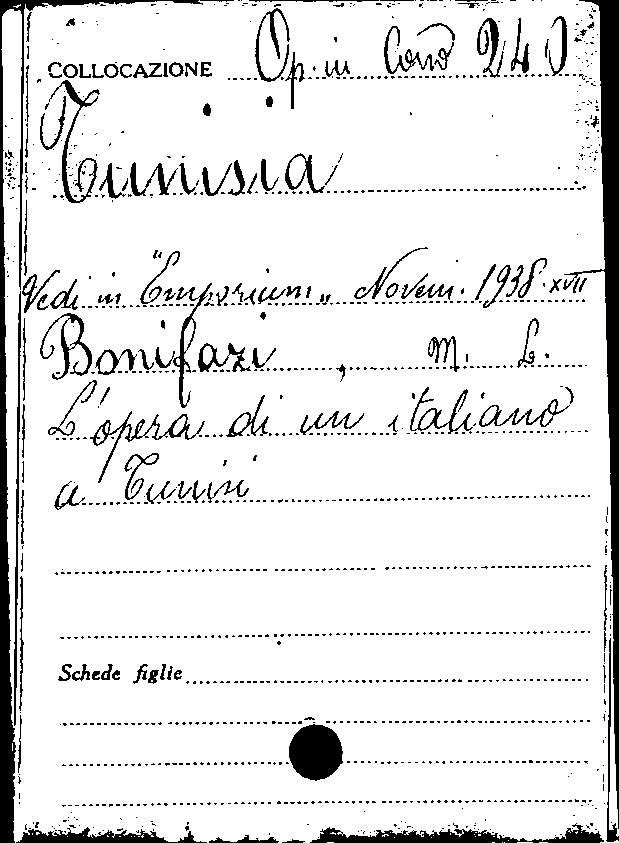 COLLOCAZIONE Op. in Cons 240
Tunisia
Vedi in "Emporium" Novem. 1938. XVII
Bonifazi, M. L.
L'opera di un italiano
a Tunisi
Schede figlie